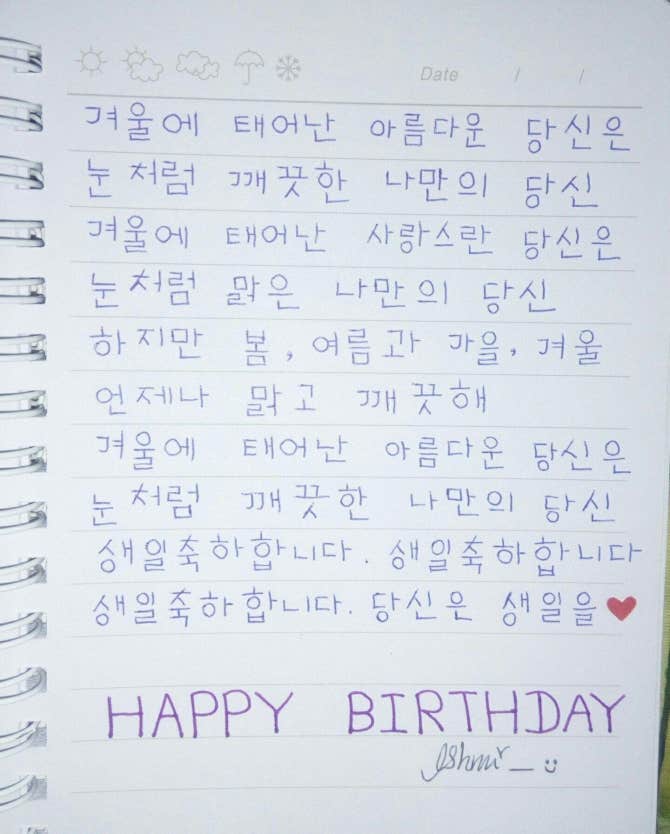 Date / /
겨울에 태어난 아름다운 당신은
눈처럼 깨끗한 나만의 당신
겨울에 태어난 사랑스란 당신은
눈처럼 맑은 나만의 당신
하지만 봄, 여름과 가을, 겨울
언제나 맑고 깨끗해
겨울에 태어난 아름다운 당신은
눈처럼 깨끗한 나만의 당신
생일축하합니다. 생일축하합니다
생일축하합니다. 당신은 생일을 ♥
HAPPY BIRTHDAY